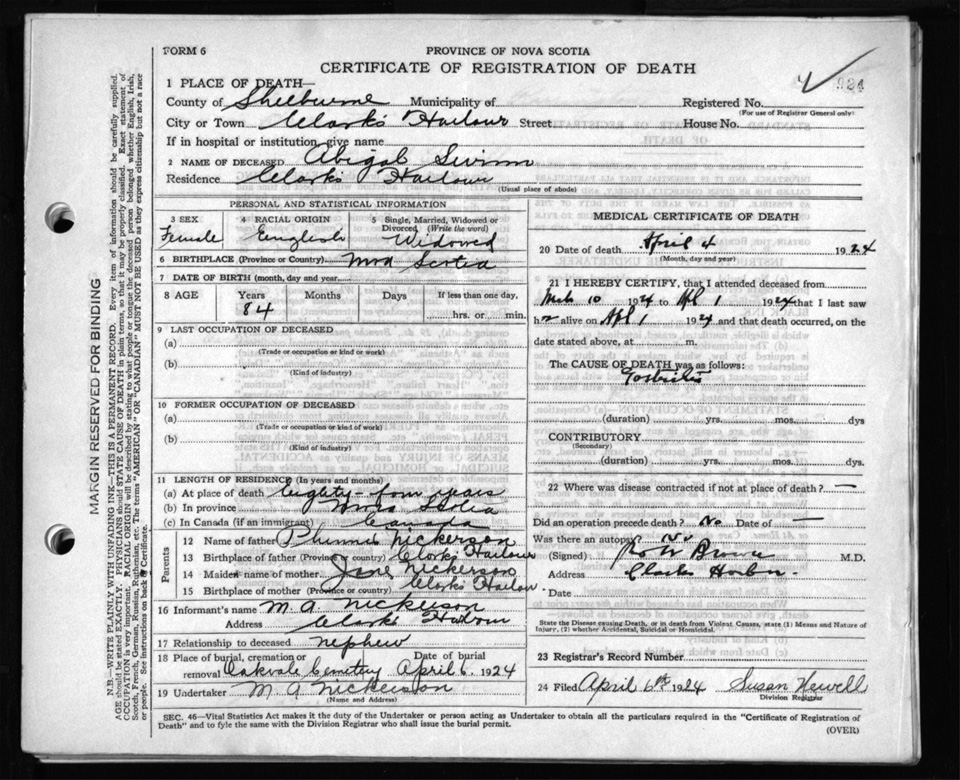 FORM 6
PROVINCE OF NOVA SCOTIA
CERTIFICATE OF REGISTRATION OF DEATH
924
1 PLACE OF DEATH—
County of Shelburne Municipality of Registered No.
(For use of Registrar General only)
City or Town Clark's Harbour Street House No.
If in hospital or institution, give name
2 NAME OF DECEASED Abigal Swim
Residence Clark's Harbour
(Usual place of abode)
PERSONAL AND STATISTICAL INFORMATION
3 SEX 4 RACIAL ORIGIN 5 Single, Married, Widowed or Divorced (Write the word)
Female English Widowed
6 BIRTHPLACE (Province or Country) Nova Scotia
7 DATE OF BIRTH (month, day and year)
8 AGE Years Months Days If less than one day,
84 hrs. or min.
9 LAST OCCUPATION OF DECEASED
(a)
(Trade or occupation or kind or work)
(b)
(Kind of industry)
10 FORMER OCCUPATION OF DECEASED
(a)
(Trade or occupation or kind of work)
(b)
(Kind of industry)
11 LENGTH OF RESIDENCE (In years and months)
(a) At place of death Eighty-four years
(b) In province Nova Scotia
(c) In Canada (if an immigrant) Canada
Parents
12 Name of father Nickerson
13 Birthplace of father (Province or country) Clarks Harbour
14 Maiden name of mother Jane Nickerson
15 Birthplace of mother (Province or country) Clarks Harbour
16 Informant's name M. A. Nickerson
Address Clarks Harbour
17 Relationship to deceased nephew
18 Place of burial, cremation or removal Date of burial
Oakvale Cemetery April 6, 1924
19 Undertaker M A Nickerson
(Name and Address)
MEDICAL CERTIFICATE OF DEATH
20 Date of death April 4 1924
(Month, day and year)
21 I HEREBY CERTIFY, that I attended deceased from
Mch 10 1924 to Apl 1 1924 that I last saw
h er alive on Apl 1 1924 and that death occurred, on the
date stated above, at m.
The CAUSE OF DEATH was as follows:
Gastritis
(duration) yrs. mos. dys
CONTRIBUTORY
(Secondary)
(duration) yrs. mos. dys.
22 Where was disease contracted if not at place of death? —
Did an operation precede death? No Date of —
Was there an autopsy No
(Signed) Brown M.D.
Address Clarks Harbor
Date
State the Disease causing Death, or in death from Violent Causes, state (1) Means and Nature of
Injury, (2) whether Accidental, Suicidal or Homicidal.
23 Registrar's Record Number
24 Filed April 6th 1924 Susan Newell
Division Registrar
SEC. 46—Vital Statistics Act makes it the duty of the Undertaker or person acting as Undertaker to obtain all the particulars required in the "Certificate of Registration of
Death" and to fyle the same with the Division Registrar who shall issue the burial permit.
(OVER)
MARGIN RESERVED FOR BINDING
N.B.—WRITE PLAINLY WITH UNFADING INK—THIS IS A PERMANENT RECORD. Every item of information should be carefully supplied.
AGE should be stated EXACTLY. PHYSICIANS should STATE CAUSE OF DEATH in plain terms, so that it may be properly classified. Exact statement of
OCCUPATION is very important. RACIAL ORIGIN will be described by stating to what people or tongue the deceased person belonged whether English, Irish,
Scotch, French, German, Russian, Ruthenian, etc. The terms "AMERICAN" OR "CANADIAN" MUST NOT BE USED as they express citizenship but not a race
or people. See instructions on back of Certificate.